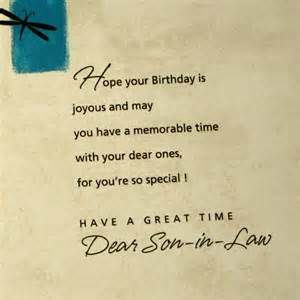 Hope your Birthday is
joyous and may
you have a memorable time
with your dear ones,
for you're so special !
HAVE A GREAT TIME
Dear Son-in-Law